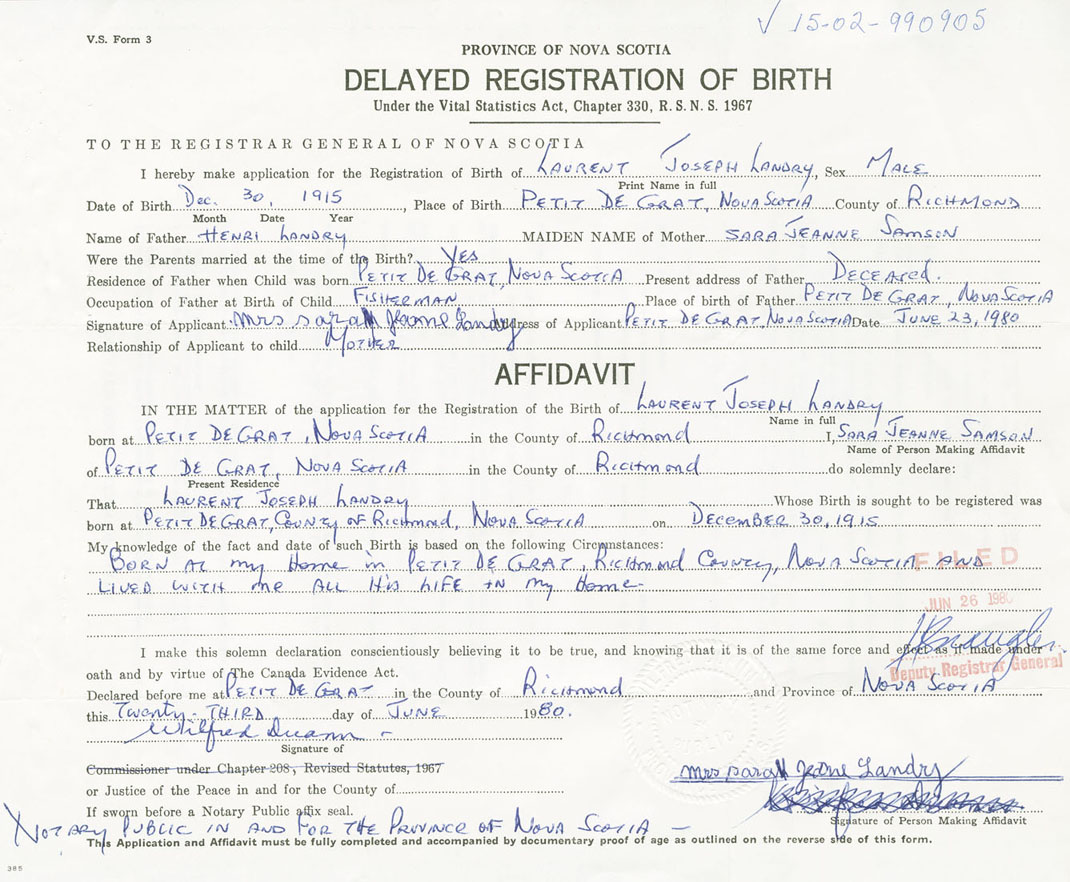 ✓ 15-02-990905
V.S. Form 3
PROVINCE OF NOVA SCOTIA
DELAYED REGISTRATION OF BIRTH
Under the Vital Statistics Act, Chapter 330, R.S.N.S. 1967
TO THE REGISTRAR GENERAL OF NOVA SCOTIA
I hereby make application for the Registration of Birth of LAURENT JOSEPH LANDRY, Sex MALE
Print Name in full
Date of Birth Dec. 30, 1915, Place of Birth PETIT DE GRAT, NOVA SCOTIA County of RICHMOND
Month Date Year
Name of Father HENRI LANDRY MAIDEN NAME of Mother SARA JEANNE SAMSON
Were the Parents married at the time of the Birth? YES
Residence of Father when Child was born PETIT DE GRAT, NOVA SCOTIA Present address of Father DECEASED.
Occupation of Father at Birth of Child FISHERMAN Place of birth of Father PETIT DE GRAT, NOVA SCOTIA
Signature of Applicant Mrs Sarah Jeanne Landry Address of Applicant PETIT DE GRAT, NOVA SCOTIA Date JUNE 23, 1980
Relationship of Applicant to child MOTHER
AFFIDAVIT
IN THE MATTER of the application for the Registration of the Birth of LAURENT JOSEPH LANDRY
Name in full
born at PETIT DE GRAT, NOVA SCOTIA in the County of Richmond I, SARA JEANNE SAMSON
Name of Person Making Affidavit
of PETIT DE GRAT, NOVA SCOTIA in the County of Richmond do solemnly declare:
Present Residence
That LAURENT JOSEPH LANDRY Whose Birth is sought to be registered was
born at PETIT DE GRAT, COUNTY OF Richmond, NOVA SCOTIA on DECEMBER 30, 1915
My knowledge of the fact and date of such Birth is based on the following Circumstances:
BORN AT my Home in PETIT DE GRAT, Richmond County, NOVA SCOTIA AND
LIVED WITH me ALL His LIFE IN my Home.
FILED
JUN 26 1980
I make this solemn declaration conscientiously believing it to be true, and knowing that it is of the same force and effect as if made under
oath and by virtue of The Canada Evidence Act.
Deputy Registrar General
Declared before me at PETIT DE GRAT in the County of Richmond and Province of NOVA SCOTIA
this TWENTY-THIRD day of JUNE 1980.
Wilfred
Signature of
Commissioner under Chapter 208, Revised Statutes, 1967
Mrs Sarah Jeane Landry
or Justice of the Peace in and for the County of
If sworn before a Notary Public affix seal.
Signature of Person Making Affidavit
NOTARY PUBLIC IN AND FOR THE PROVINCE OF NOVA SCOTIA —
This Application and Affidavit must be fully completed and accompanied by documentary proof of age as outlined on the reverse side of this form.
385